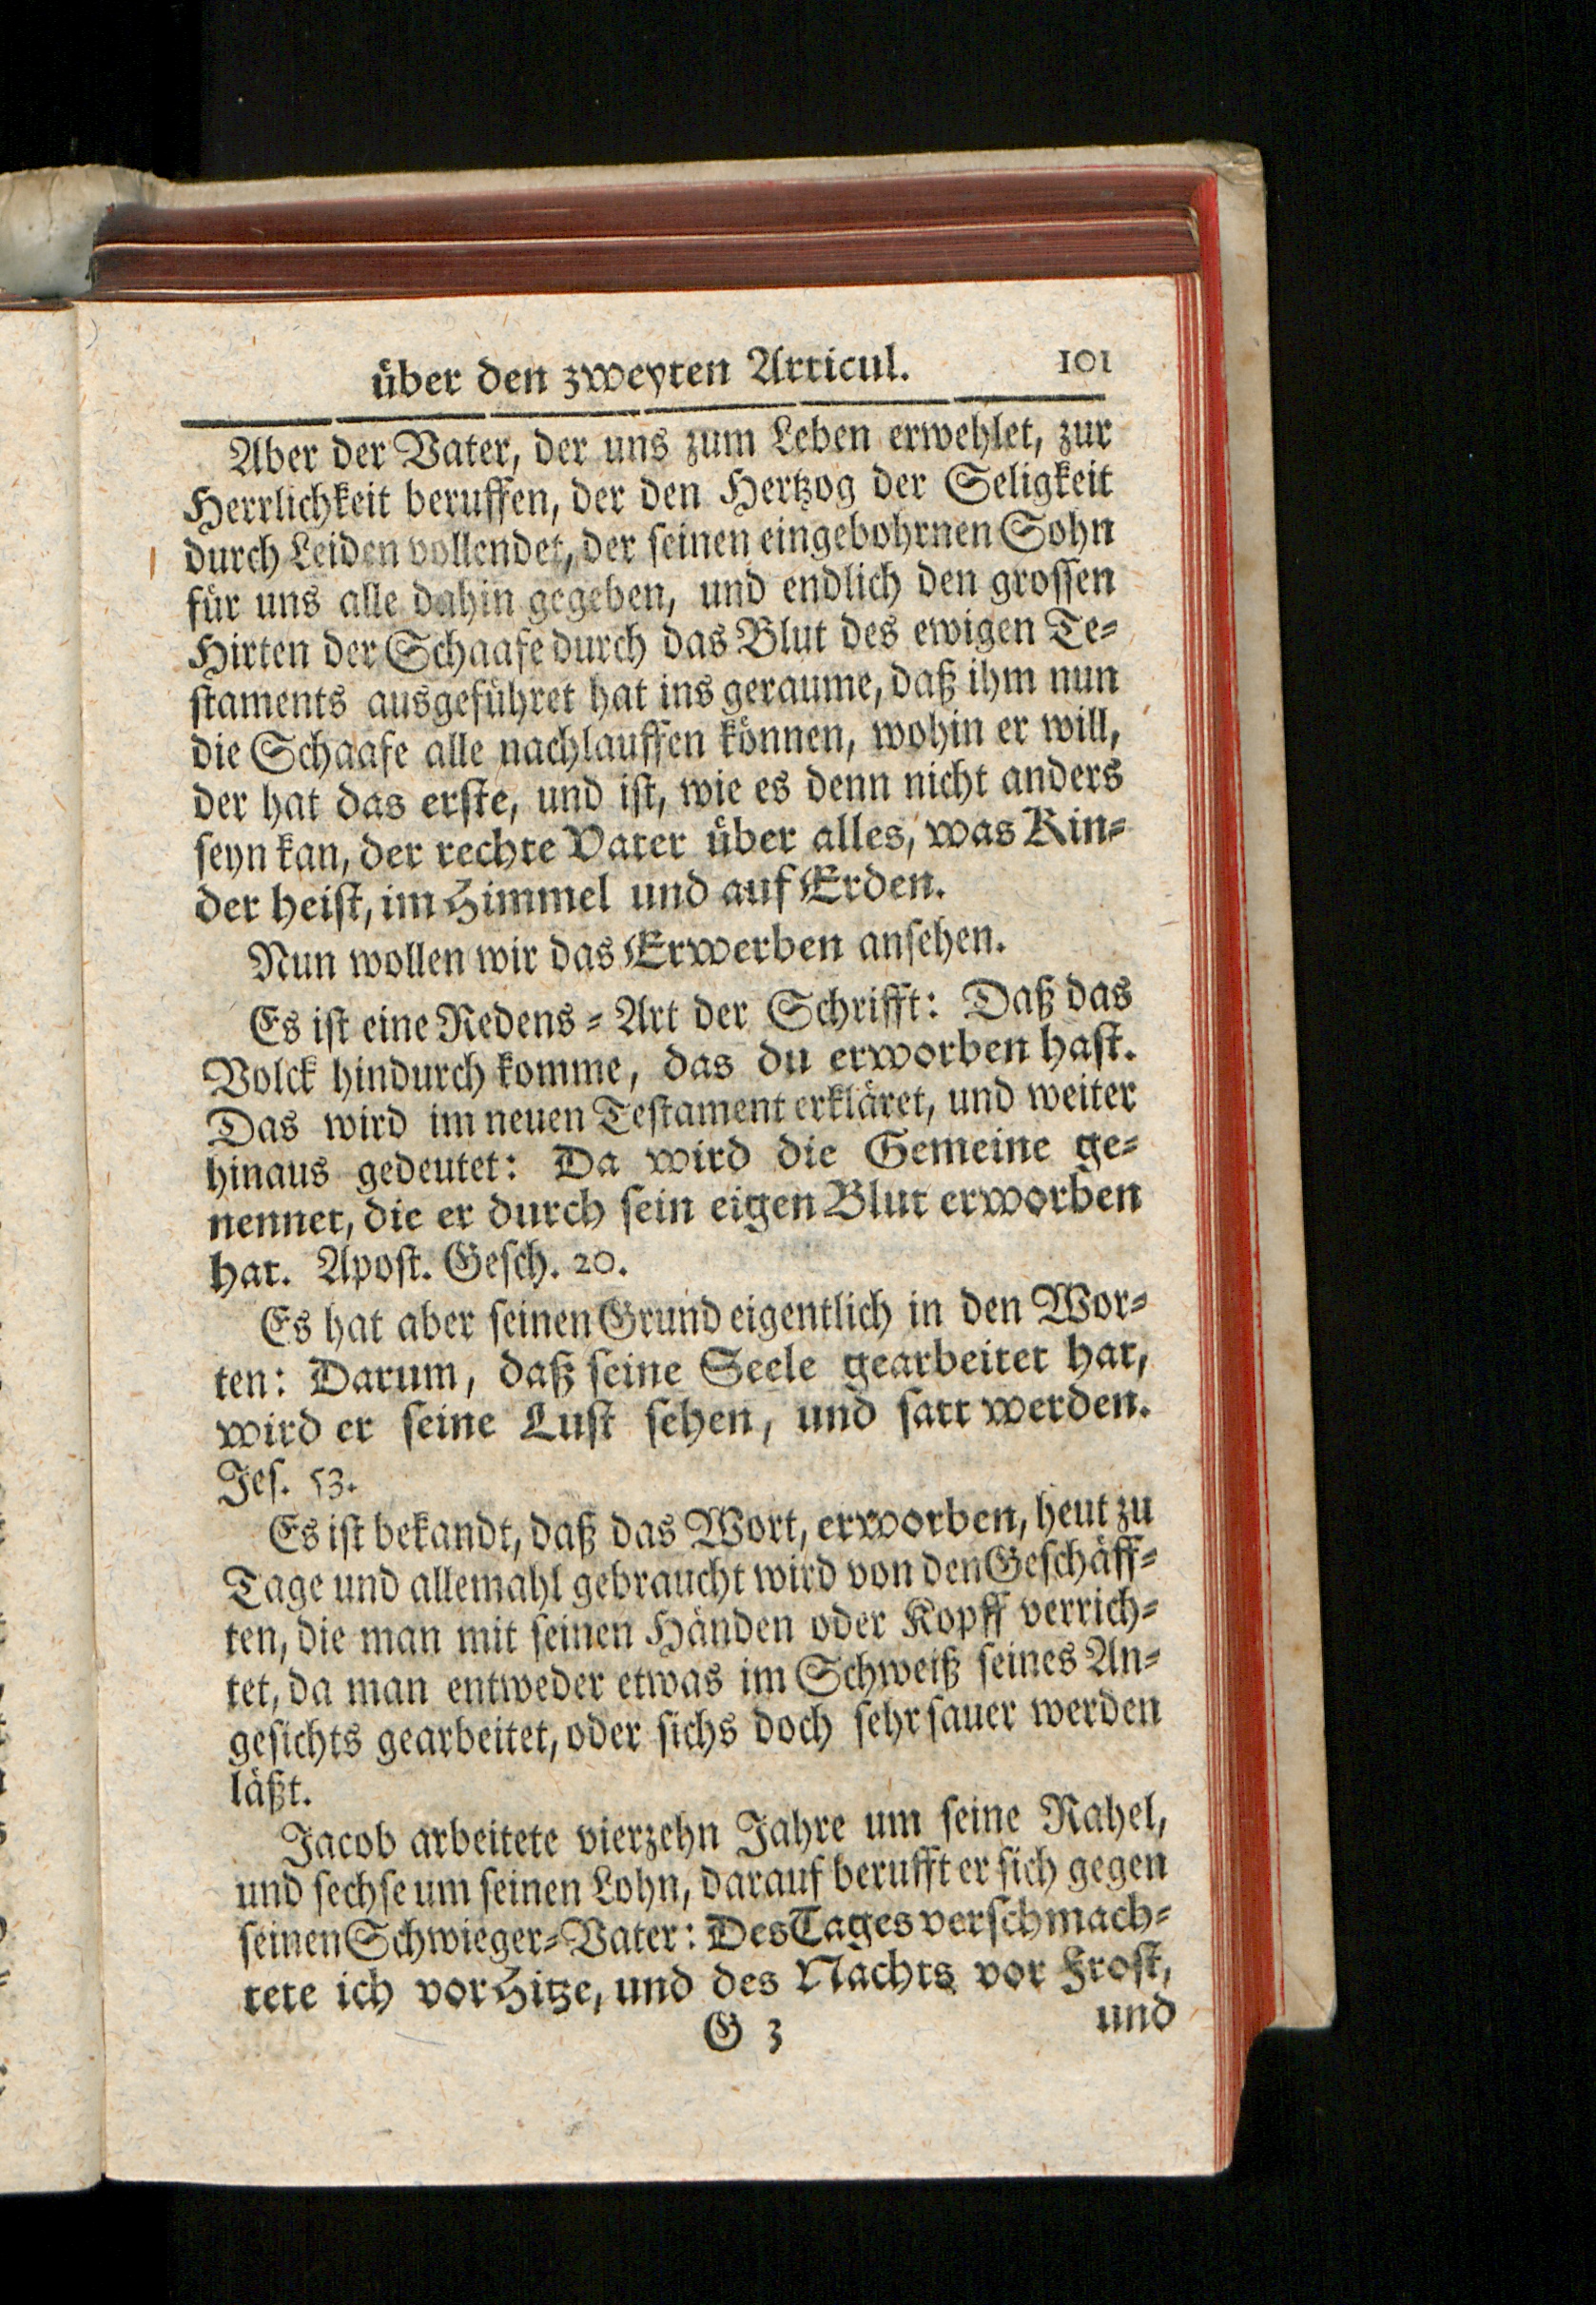 über den zweyten Articul. 101
Aber der Vater, der uns zum Leben erwehlet, zur
Herrlichkeit beruffen, der den Hertzog der Seligkeit
durch Leiden vollendet, der seinen eingebohrnen Sohn
für uns alle dahin gegeben, und endlich den grossen
Hirten der Schaafe durch das Blut des ewigen Te-
staments ausgeführet hat ins geraume, daß ihm nun
die Schaafe alle nachlauffen können, wohin er will,
der hat das erste, und ist, wie es denn nicht anders
seyn kan, der rechte Vater über alles, was Kin-
der heist, im Himmel und auf Erden.
Nun wollen wir das Erwerben ansehen.
Es ist eine Redens-Art der Schrifft: Daß das
Volck hindurch komme, das du erworben hast.
Das wird im neuen Testament erkläret, und weiter
hinaus gedeutet: Da wird die Gemeine ge-
nennet, die er durch sein eigen Blut erworben
hat. Apost. Gesch. 20.
Es hat aber seinen Grund eigentlich in den Wor-
ten: Darum, daß seine Seele gearbeitet hat,
wird er seine Lust sehen, und satt werden.
Jes. 53.
Es ist bekandt, daß das Wort, erworben, heut zu
Tage und allemahl gebraucht wird von den Geschäff-
ten, die man mit seinen Händen oder Kopff verrich-
tet, da man entweder etwas im Schweiß seines An-
gesichts gearbeitet, oder sichs doch sehr sauer werden
läßt.
Jacob arbeitete vierzehn Jahre um seine Rahel,
und sechse um seinen Lohn, darauf berufft er sich gegen
seinen Schwieger-Vater: Des Tages verschmach-
tete ich vor Hitze, und des Nachts vor Frost,
G 3 und